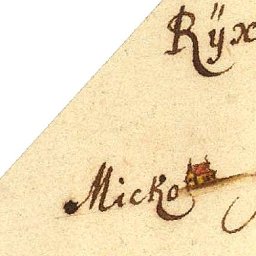 Rÿx
Micko